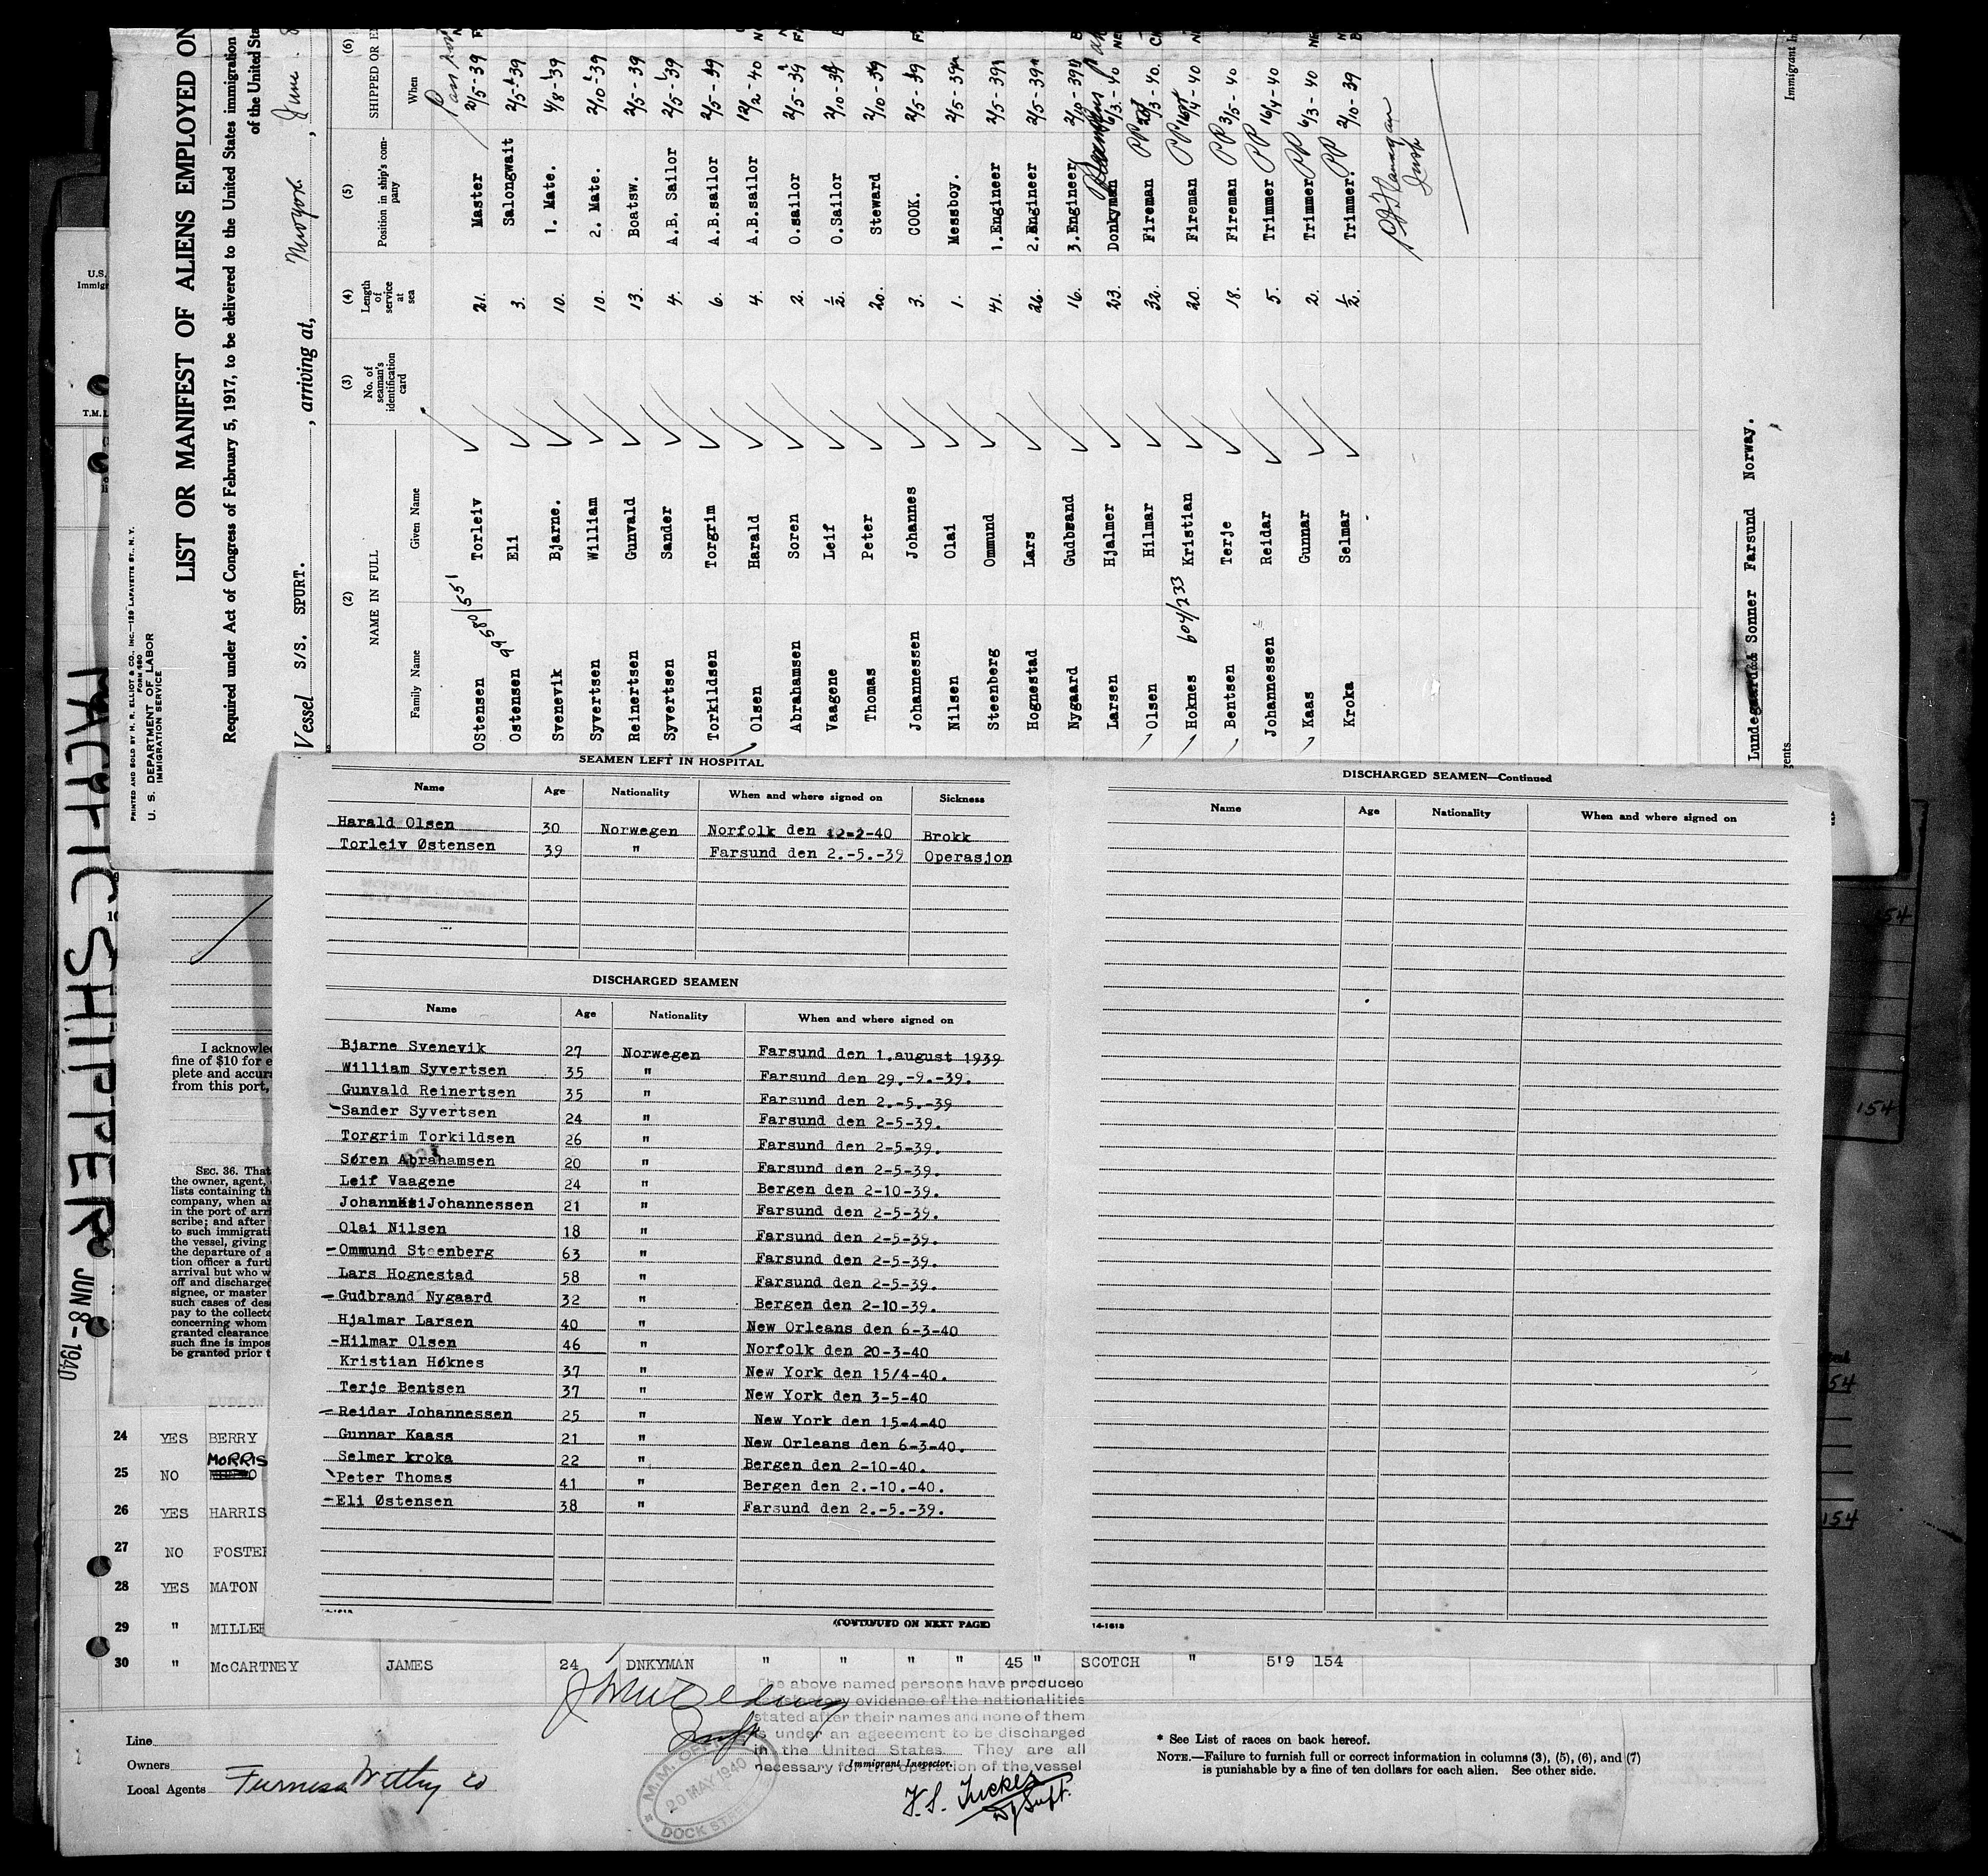 PRINTED AND SOLD BY H. R. ELLIOT & CO., INC.—129 LAFAYETTE ST., N. Y.
FORM 680
U. S. DEPARTMENT OF LABOR
IMMIGRATION SERVICE
LIST OR MANIFEST OF ALIENS EMPLOYED ON
Required under Act of Congress of February 5, 1917, to be delivered to the United States immigration
of the United Sta
Vessel S/S. SPURT. , arriving at, , June 8
(2) (3) (4) (5) (6)
NAME IN FULL No. of seaman's identification card Length of service at sea Position in ship's company SHIPPED OR E
Family Name Given Name When
OStensen Torleiv 21. Master 2/5-39
Ostensen Eli 3. Salongwait 2/5-39
99580/551
Svenevik Bjarne. 10. 1. Mate. 4/8-39
Syvertsen William 10. 2. Mate. 2/10-39
Reinertsen Gunvald 13. Boatsw. 2/5-39
Syvertsen Sander 4. A.B. Sailor 2/5-39
Torkildsen Torgrim 6. A.B.sailor 2/5-39
Olsen Harald 4. A.B.sailor 12/2-40
Abrahamsen Soren 2. O.sailor 2/5-39
Vaagene Leif ½. O.Sailor 2/10-39
Thomas Peter 20. Steward 2/10-39
Johannessen Johannes 3. COOK. 2/5-39
Nilsen Olai 1. Messboy. 2/5-39
Steenberg Ommund 41. 1.Engineer 2/5-39
Hognestad Lars 26. 2.Engineer 2/5-39
Nygaard Gudbrand 16. 3.Engineer 2/10-39
Larsen Hjalmer 23. Donkyman 6/3-40
Olsen Hilmar 32. Fireman PP 20/3-40.
Hoknes 604/233 Kristian 20. Fireman PP 16/4-40
Bentsen Terje 18. Fireman PP 3/5-40
Johannessen Reidar 5. Trimmer PP 16/4-40
Kaas Gunnar 2. Trimmer PP 6/3-40
Kroka Selmar ½. Trimmer. PP 2/10-39
Lundegaard & Sonner Farsund Norway.
gents
Immigrant In
U.S.
Immigr
PACIFIC SHIPPER
JUN 8-1940
SEAMEN LEFT IN HOSPITAL
Name Age Nationality When and where signed on Sickness
Harald Olsen 30 Norwegen Norfolk den 12-2-40 Brokk
Torleiv Østensen 39 " Farsund den 2.-5.-39 Operasjon
DISCHARGED SEAMEN
Name Age Nationality When and where signed on
Bjarne Svenevik 27 Norwegen Farsund den 1.august 1939
William Syvertsen 35 " Farsund den 29.-9.-39.
Gunvald Reinertsen 35 " Farsund den 2.-5.-39
Sander Syvertsen 24 " Farsund den 2-5-39.
Torgrim Torkildsen 26 " Farsund den 2-5-39.
Søren Abrahamsen 20 " Farsund den 2-5-39.
Leif Vaagene 24 " Bergen den 2-10-39.
Johannes Johannessen 21 " Farsund den 2-5-39.
Olai Nilsen 18 " Farsund den 2-5-39.
Ommund Steenberg 63 " Farsund den 2-5-39.
Lars Hognestad 58 " Farsund den 2-5-39.
Gudbrand Nygaard 32 " Bergen den 2-10-39.
Hjalmar Larsen 40 " New Orleans den 6-3-40
Hilmar Olsen 46 " Norfolk den 20-3-40
Kristian Høknes 37 " New York den 15/4-40.
Terje Bentsen 37 " New York den 3-5-40
Reidar Johannessen 25 " New York den 15-4-40
Gunnar Kaass 21 " New Orleans den 6-3-40.
Selmer kroka 22 " Bergen den 2-10-40.
Peter Thomas 41 " Bergen den 2.-10.-40.
Eli Østensen 38 " Farsund den 2.-5.-39.
(CONTINUED ON NEXT PAGE)
DISCHARGED SEAMEN—Continued
Name Age Nationality When and where signed on
14-1618
154
154
54
154
I acknowle
fine of $10 for e
plete and accura
from this port,
SEC. 36. That
the owner, agent,
lists containing th
company, when ar
in the port of arri
scribe; and after
to such immigrati
the vessel, giving
the departure of a
tion officer a furt
arrival but who w
off and discharged
signee, or master
such cases of dese
pay to the collecto
concerning whom
granted clearance
such fine is impos
be granted prior t
24 YES BERRY
MORRIS
25 NO
26 YES HARRIS
27 NO FOSTER
28 YES MATON
29 " MILLER
30 " McCARTNEY JAMES 24 DNKYMAN " " " " 45 " SCOTCH " 5'9 154
he above named persons have produced
satisfactory evidence of the nationalities
stated after their names and none of them
is under an ageeement to be discharged
in the United States They are all
necessary for the operation of the vessel
Immigrant Inspector.
M.M. OFFICE
20 MAY 1940
DOCK STREET
F. S. Tucker
D/Supt.
Line
Owners
Local Agents Furness Withy Co
* See List of races on back hereof.
NOTE.—Failure to furnish full or correct information in columns (3), (5), (6), and (7)
is punishable by a fine of ten dollars for each alien. See other side.